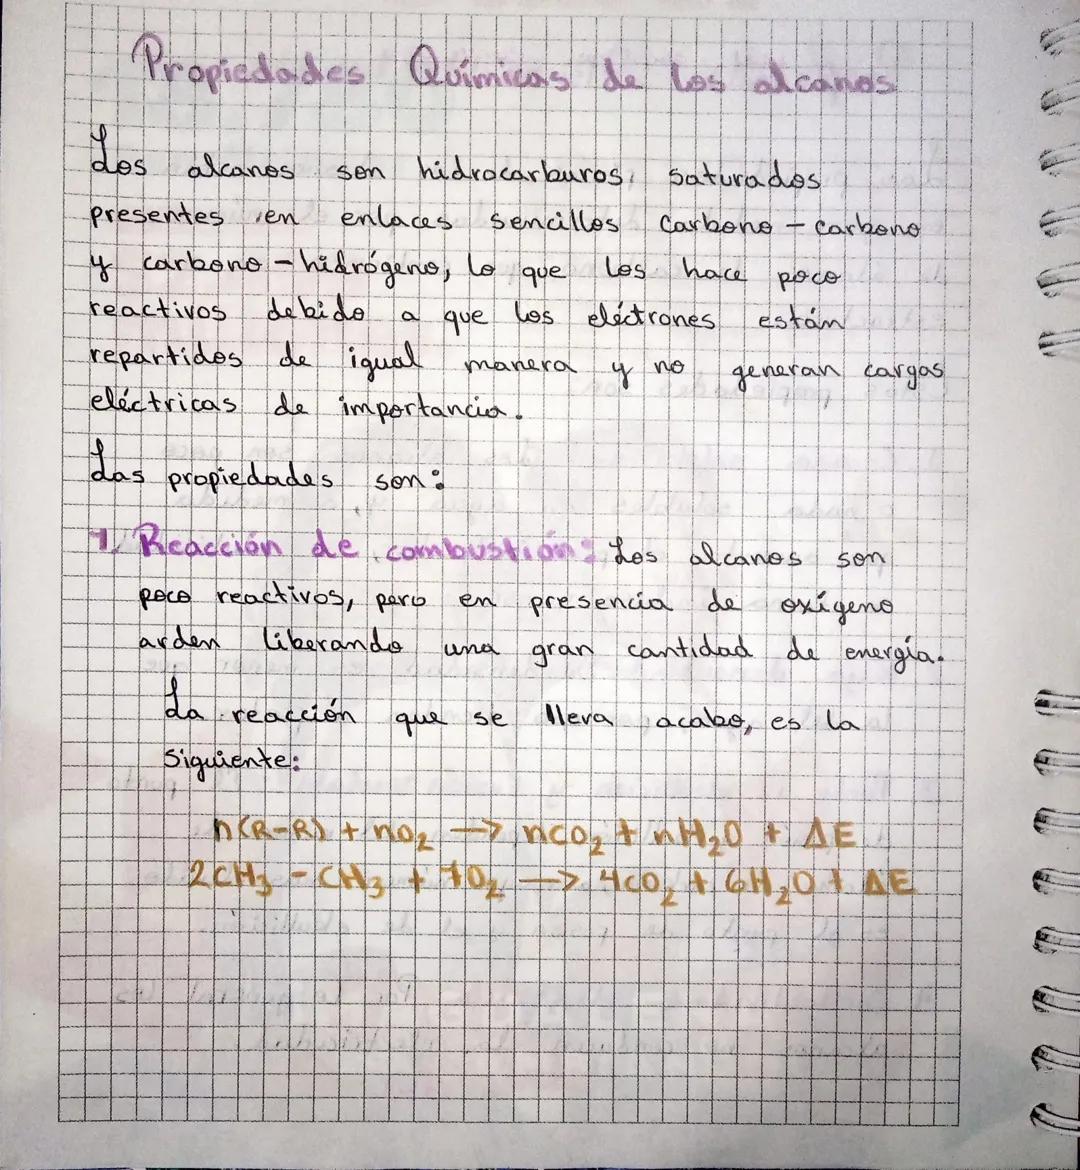 Propiedades Químicas de los alcanos
Los alcanos son hidrocarburos, saturados
presentes en enlaces sencillos carbono - carbono
y carbono - hidrógeno, lo que los hace poco
reactivos debido a que los eléctrones están
repartidos de igual manera y no generan cargas
eléctricas de importancia.
Las propiedades son:
1. Reacción de combustión: Los alcanos son
poco reactivos, pero en presencia de oxígeno
arden liberando una gran cantidad de energía.
La reacción que se lleva acabo, es la
siguiente:
n(R-R) + nO₂ → nCO₂ + nH₂O + ΔE
2CH₃ - CH₃ + 7O₂ → 4CO₂ + 6H₂O + ΔE